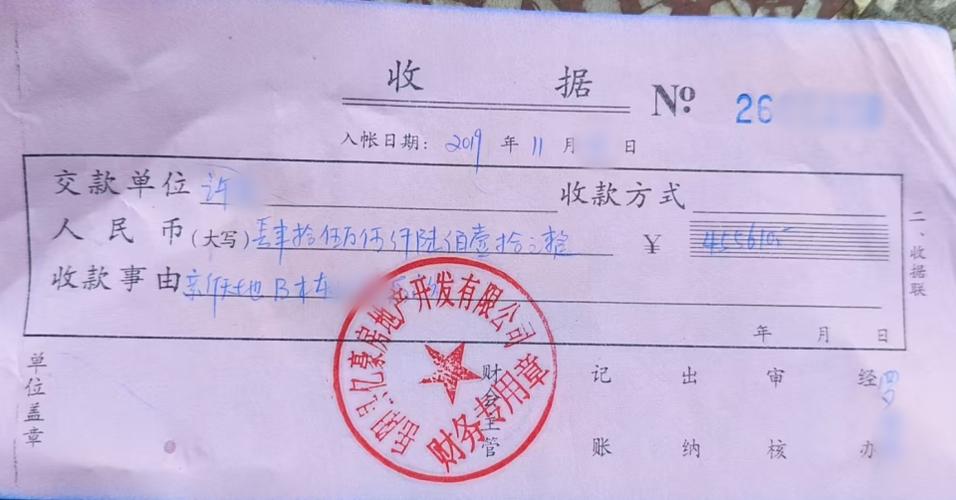 收 据 № 26
入帐日期: 2019 年 11 月 日
交款单位 许 收款方式
人民币(大写) 肆拾伍万伍仟陆佰壹拾元整 ¥ 455610.-
收款事由 新天地B本车
二、收据联
年 月 日
亿豪房地产开发有限公司
财务专用章
单位盖章 财会主管 记账 出纳 审核 经办